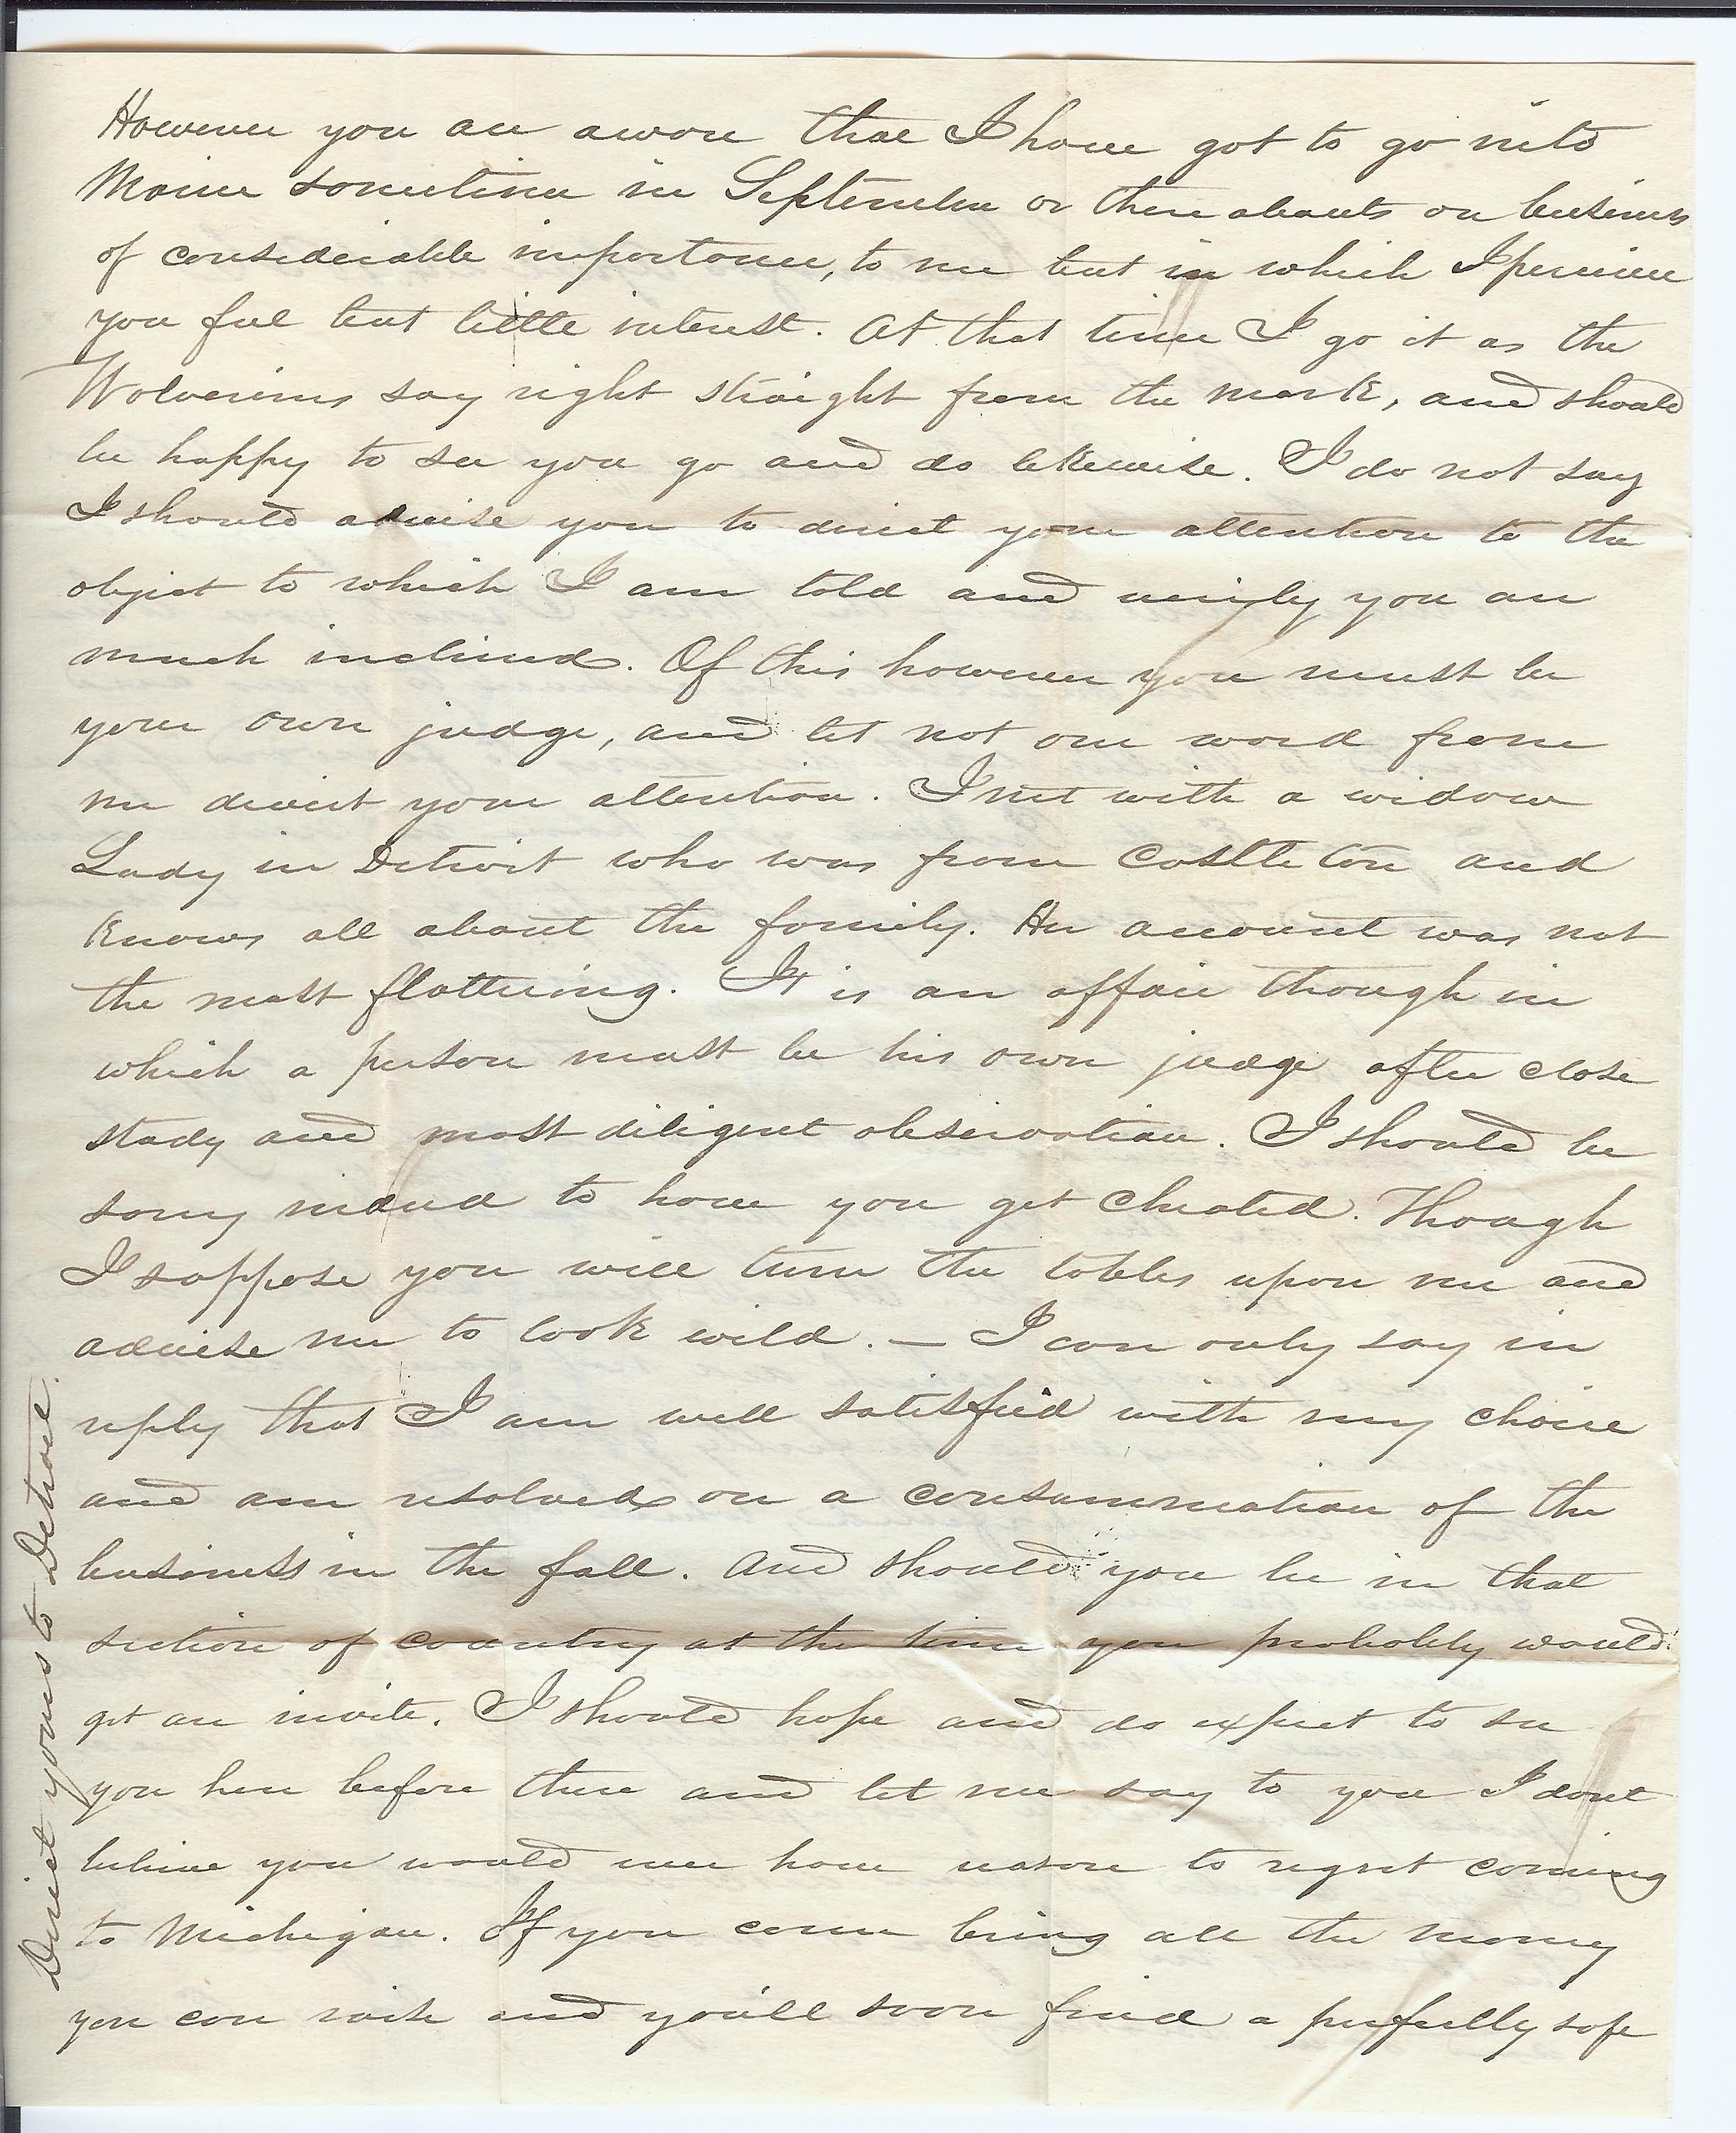 However you are aware that I have got to go into
Maine sometime in September or there abouts on business
of considerable importance, to me but in which I perceive
you feel but little interest. At that time I go it as the
Wolverines say right straight from the mark, and should
be happy to see you go and do likewise. I do not say
I should advise you to direct your attention to the
object to which I am told and verily you are
much inclined. Of this however you must be
your own judge, and let not one word from
me divert your attention. I met with a widow
Lady in Detroit who was from Castleton and
knows all about the family. Her account was not
the most flattering. It is an affair though in
which a person must be his own judge after close
study and most diligent observation. I should be
sorry indeed to have you get cheated. Though
I suppose you will turn the tables upon me and
advise me to look wild. — I can only say in
reply that I am well satisfied with my choice
and am resolved on a consummation of the
business in the fall. And should you be in that
section of country at the time you probably would
get an invite. I should hope and do expect to see
you here before then and let me say to you I dont
believe you would ever have reason to regret coming
to Michigan. If you come bring all the money
you can raise and you'll soon find a perfectly safe
Direct yours to Detroit.